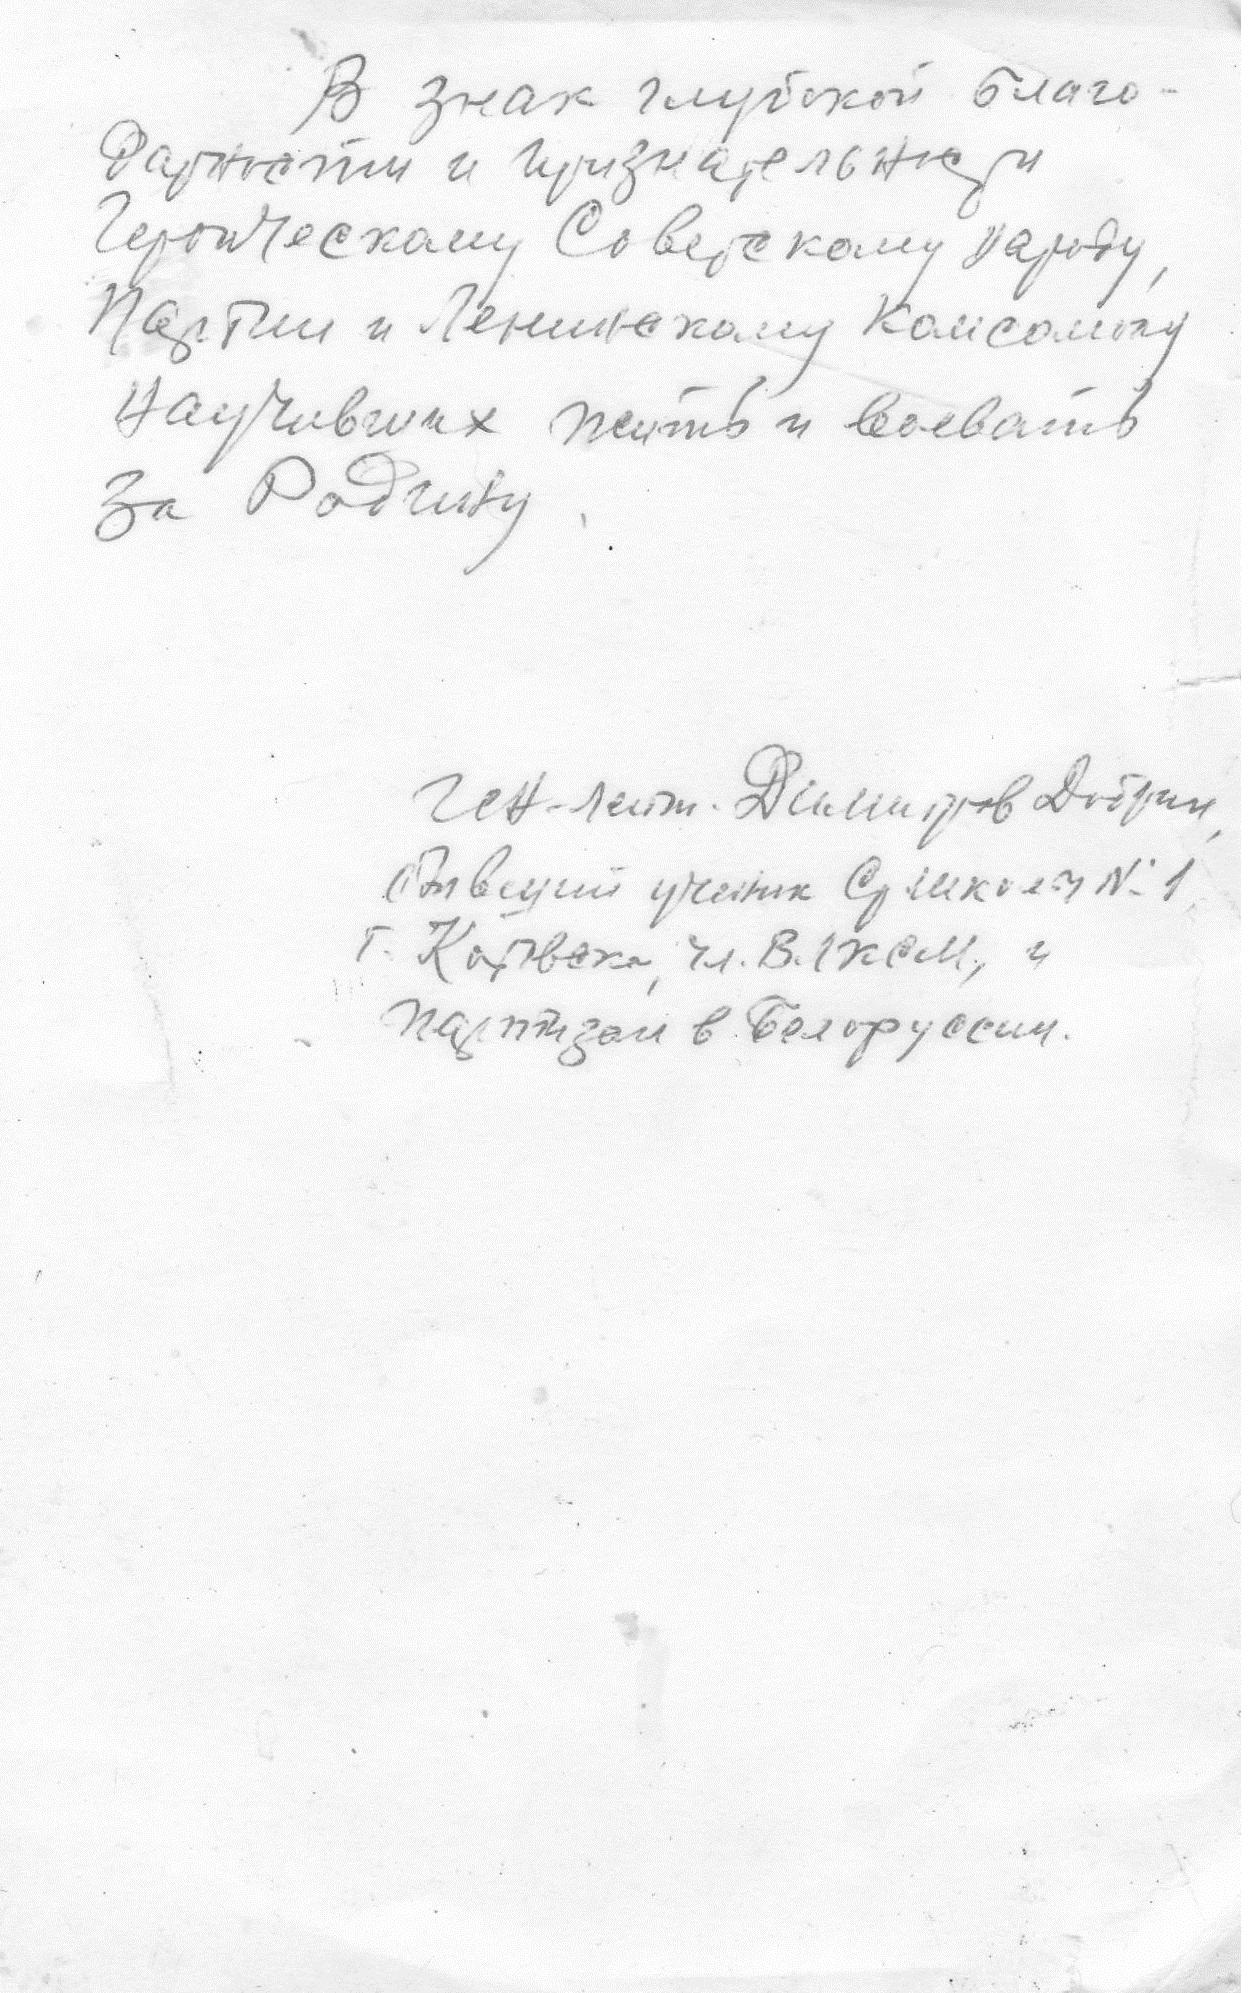 В знак глубокой благо-
дарности и признательности
Героическому Советскому народу,
Партии и Ленинскому Комсомолу
научивших жить и воевать
за Родину.
Ген-лейт. Димитров Добрин,
бывший ученик Ср школы № 1
г. Котовска, чл. ВЛКСМ, и
партизан в Белоруссии.